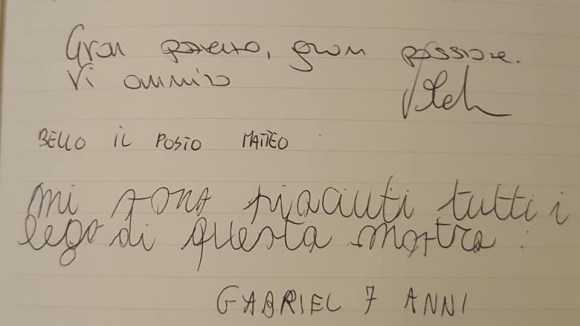 Gran , gran passione.
Vi ammiro
BELLO IL POSTO MATTEO
Mi sono piaciuti tutti i
lego di questa mostra.
GABRIEL 7 ANNI